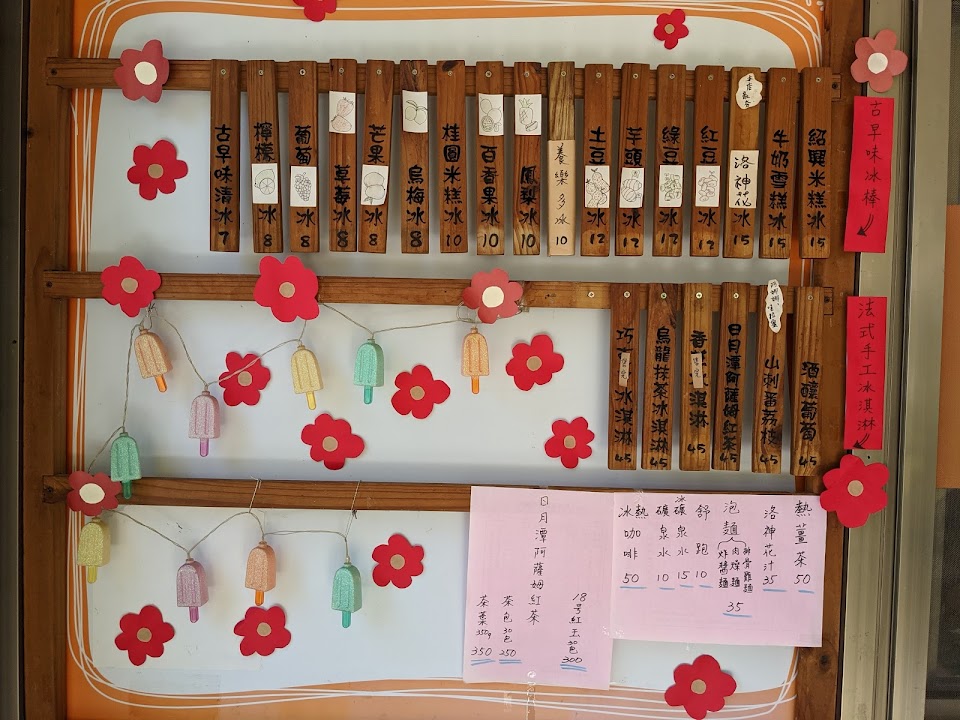 古早味冰棒
紹興米糕冰 15
牛奶雪糕冰 15
洛神花冰 15
紅豆冰 12
綠豆冰 12
芋頭冰 12
土豆冰 12
養樂多冰 10
鳳梨冰 10
百香果冰 10
桂圓米糕冰 10
烏梅冰 8
芒果冰 8
草莓冰 8
葡萄冰 8
檸檬冰 8
古早味清冰 7
法式手工冰淇淋
酒釀葡萄 45
山刺番荔枝 45
日月潭阿薩姆紅茶 45
香 淇淋 45
售完
烏龍抹茶冰淇淋 45
巧 冰淇淋 45
售完
熱薑茶 50
洛神花汁 35
泡麵
排骨雞麵
肉燥麵
炸醬麵
35
舒跑 10
冰礦泉水 15
礦泉水 10
冰熱咖啡 50
日月潭阿薩姆紅茶
18号紅玉30包 300
茶包30包 250
茶葉350g 350